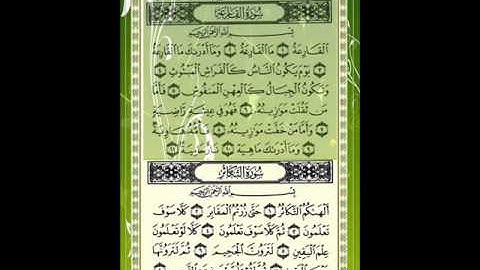 سُورَةُ القَارِعَةِ
بِسْمِ اللَّهِ الرَّحْمَٰنِ الرَّحِيمِ
الْقَارِعَةُ ١ مَا الْقَارِعَةُ ٢ وَمَا أَدْرَاكَ مَا الْقَارِعَةُ
٣ يَوْمَ يَكُونُ النَّاسُ كَالْفَرَاشِ الْمَبْثُوثِ ٤
وَتَكُونُ الْجِبَالُ كَالْعِهْنِ الْمَنفُوشِ ٥ فَأَمَّا
مَن ثَقُلَتْ مَوَازِينُهُ ٦ فَهُوَ فِي عِيشَةٍ رَّاضِيَةٍ
٧ وَأَمَّا مَنْ خَفَّتْ مَوَازِينُهُ ٨ فَأُمُّهُ هَاوِيَةٌ
٩ وَمَا أَدْرَاكَ مَا هِيَهْ ١٠ نَارٌ حَامِيَةٌ ١١
سُورَةُ التَّكَاثُرِ
بِسْمِ اللَّهِ الرَّحْمَٰنِ الرَّحِيمِ
أَلْهَاكُمُ التَّكَاثُرُ ١ حَتَّىٰ زُرْتُمُ الْمَقَابِرَ ٢ كَلَّا سَوْفَ
تَعْلَمُونَ ٣ ثُمَّ كَلَّا سَوْفَ تَعْلَمُونَ ٤ كَلَّا لَوْ تَعْلَمُونَ
عِلْمَ الْيَقِينِ ٥ لَتَرَوُنَّ الْجَحِيمَ ٦ ثُمَّ لَتَرَوُنَّهَا